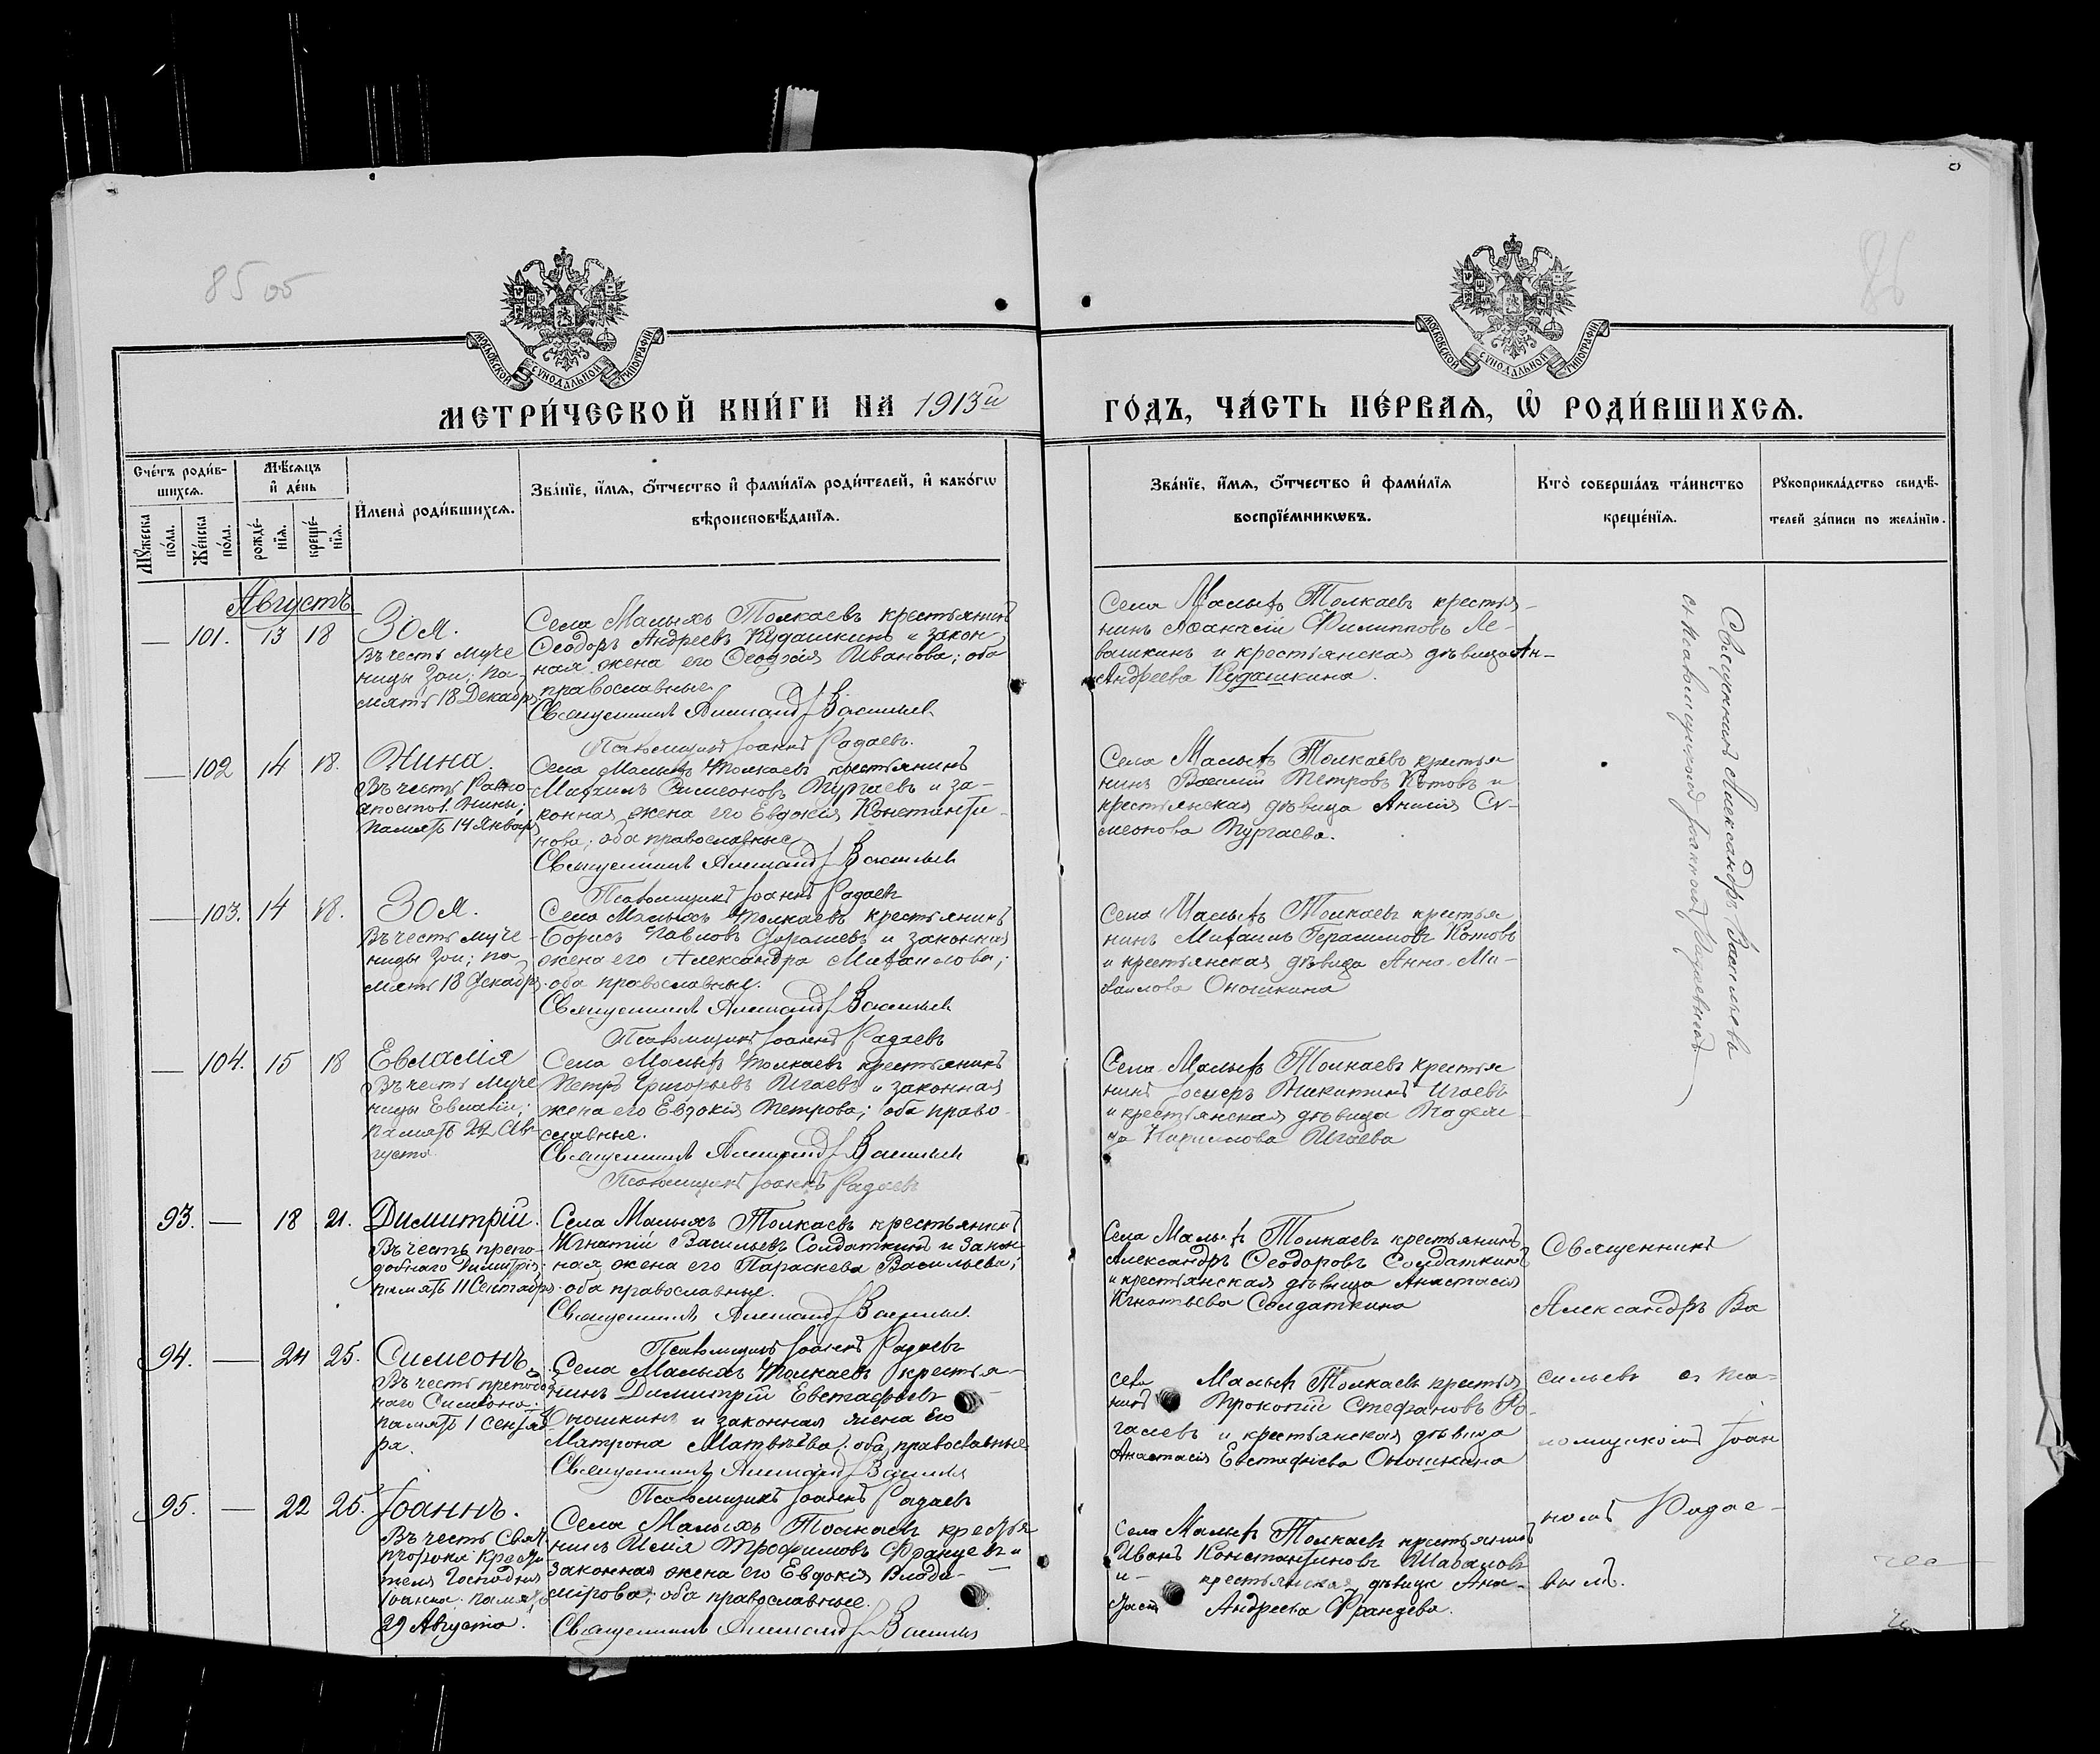 85 об
86
МОСКОВСКОЙ СѴНОДАЛЬНОЙ ТИПОГРАФІИ
МОСКОВСКОЙ СѴНОДАЛЬНОЙ ТИПОГРАФІИ
МЕТРИ́ЧЕСКОЙ КНИ́ГИ НА 1913й
ГО́ДЪ, ЧА́СТЬ ПЕ́РВАЯ, Ѡ РОДИ́ВШИХСЯ.
Сче́тъ роди́в-
шихся.
Му́жеска по́ла.
Же́нска по́ла.
Мѣ́сяцъ
и де́нь
рожде́-
нїя.
креще́-
нїя.
Имена̀ роди́вшихся.
Зва́нїе, и́мя, ѻ́тчество и фами́лїя роди́телей, и како́гѡ
вѣроисповѣ́данїя.
Зва́нїе, и́мя, ѻ́тчество и фами́лїя
воспрїе́мникѡвъ.
Кто̀ соверша́лъ та́инство
креще́нїя.
Рукоприкла́дство свидѣ́-
телей за́писи по жела́нїю.
Августъ
— 101. 13 18
Зоя.
Въ честь муче
ницы Зои; па-
мять 18 Декабр.
Села Малыхъ Толкаевъ крестьянинъ
Ѳеодоръ Андреевъ Кудашкинъ и закон
ная жена его Ивanova; оба
православные.
Священникъ Александръ Васильевъ
Псаломщикъ Іоаннъ Радаевъ.
Села Малыхъ Толкаевъ крестья-
нинъ Филипповъ Ле-
вашкинъ и крестьянская дѣвица Ан-
Андреева Кудашкина.
Священникъ Александръ Васильевъ
съ псаломщикомъ Іоанномъ Радаевымъ
— 102 14 18.
Нина.
Въ честь Равно
апостол. Нины;
память 14 Январ.
Села Малыхъ Толкаевъ крестьянинъ
Михаилъ Симеоновъ Пургаевъ и за-
конная жена его Евдокія Константи-
нова; оба православные
Священникъ Александръ Васильевъ
Псаломщикъ Іоаннъ Радаевъ
Села Малыхъ Толкаевъ крестья
нинъ Василій Петровъ Котовъ и
крестьянская дѣвица Анисія Си-
меонова Пургаева.
— 103. 14 18.
Зоя.
Въ честь муче-
ницы Зои; па-
мять 18 Декабр.
Села Малыхъ Толкаевъ крестьянинъ
Борисъ Павловъ и законная
жена его Александра Михаилова;
оба православные.
Священникъ Александръ Васильевъ
Псаломщикъ Іоаннъ Радаевъ
Села Малыхъ Толкаевъ крестья
нинъ Михаилъ Герасимовъ Котовъ
и крестьянская дѣвица Анна Ми-
хаилова Оношкина
— 104. 15 18
Евлалія
Въ честь муче
ницы Евлаліи;
память 22 Ав-
густа
Села Малыхъ Толкаевъ крестьянинъ
Петръ Григорьевъ Игаевъ и законная
жена его Евдокія Петрова; оба право-
славные.
Священникъ Александръ Васильевъ
Псаломщикъ Іоаннъ Радаевъ
Села Малыхъ Толкаевъ крестья
нинъ Никитинъ Игаевъ
и крестьянская дѣвица
Игаева
93. — 18 21.
Димитрій.
Въ честь препо-
добнаго Димитрія;
память 11 Сентябр.
Села Малыхъ Толкаевъ крестьянинъ
Игнатій Васильевъ Солдаткинъ и закон
ная жена его Параскева Васильева;
оба православные.
Священникъ Александръ Васильевъ.
Псаломщикъ Іоаннъ Радаевъ
Села Малыхъ Толкаевъ крестьянинъ
Александръ Ѳеодоровъ Солдаткинъ
и крестьянская дѣвица Анастасія
Игнатьева Солдаткина
Священникъ
Александръ Ва
сильевъ съ пса-
ломщикомъ Іоан
номъ Радае-
вымъ.
94. — 24 25.
Симеонъ.
Въ честь преподоб
наго Симеона;
память 1 Сентяб
ря.
Села Малыхъ Толкаевъ крестья-
нинъ Димитрій Евстафьевъ
Оношкинъ и законная жена его
Матрона Матвѣева; оба православные
Священникъ Александръ Васильевъ
Псаломщикъ Іоаннъ Радаевъ
села Малыхъ Толкаевъ крестья
нинъ Прокопій Стефановъ Ро-
гачевъ и крестьянская дѣвица
Анастасія Евстафіева Оношкина
95. — 22 25.
Іоаннъ.
Въ честь Свят
пророка Крести
теля Господня
Іоанна; память
29 Августа.
Села Малыхъ Толкаевъ крестья
нинъ Илія Трофимовъ Францевъ и
законная жена его Евдокія Влади-
мірова; оба православные.
Священникъ Александръ Васильевъ
Села Малыхъ Толкаевъ крестьянинъ
Иванъ Константиновъ Шабаловъ
и крестьянская дѣвица Ана-
стасія Андреева Францева.